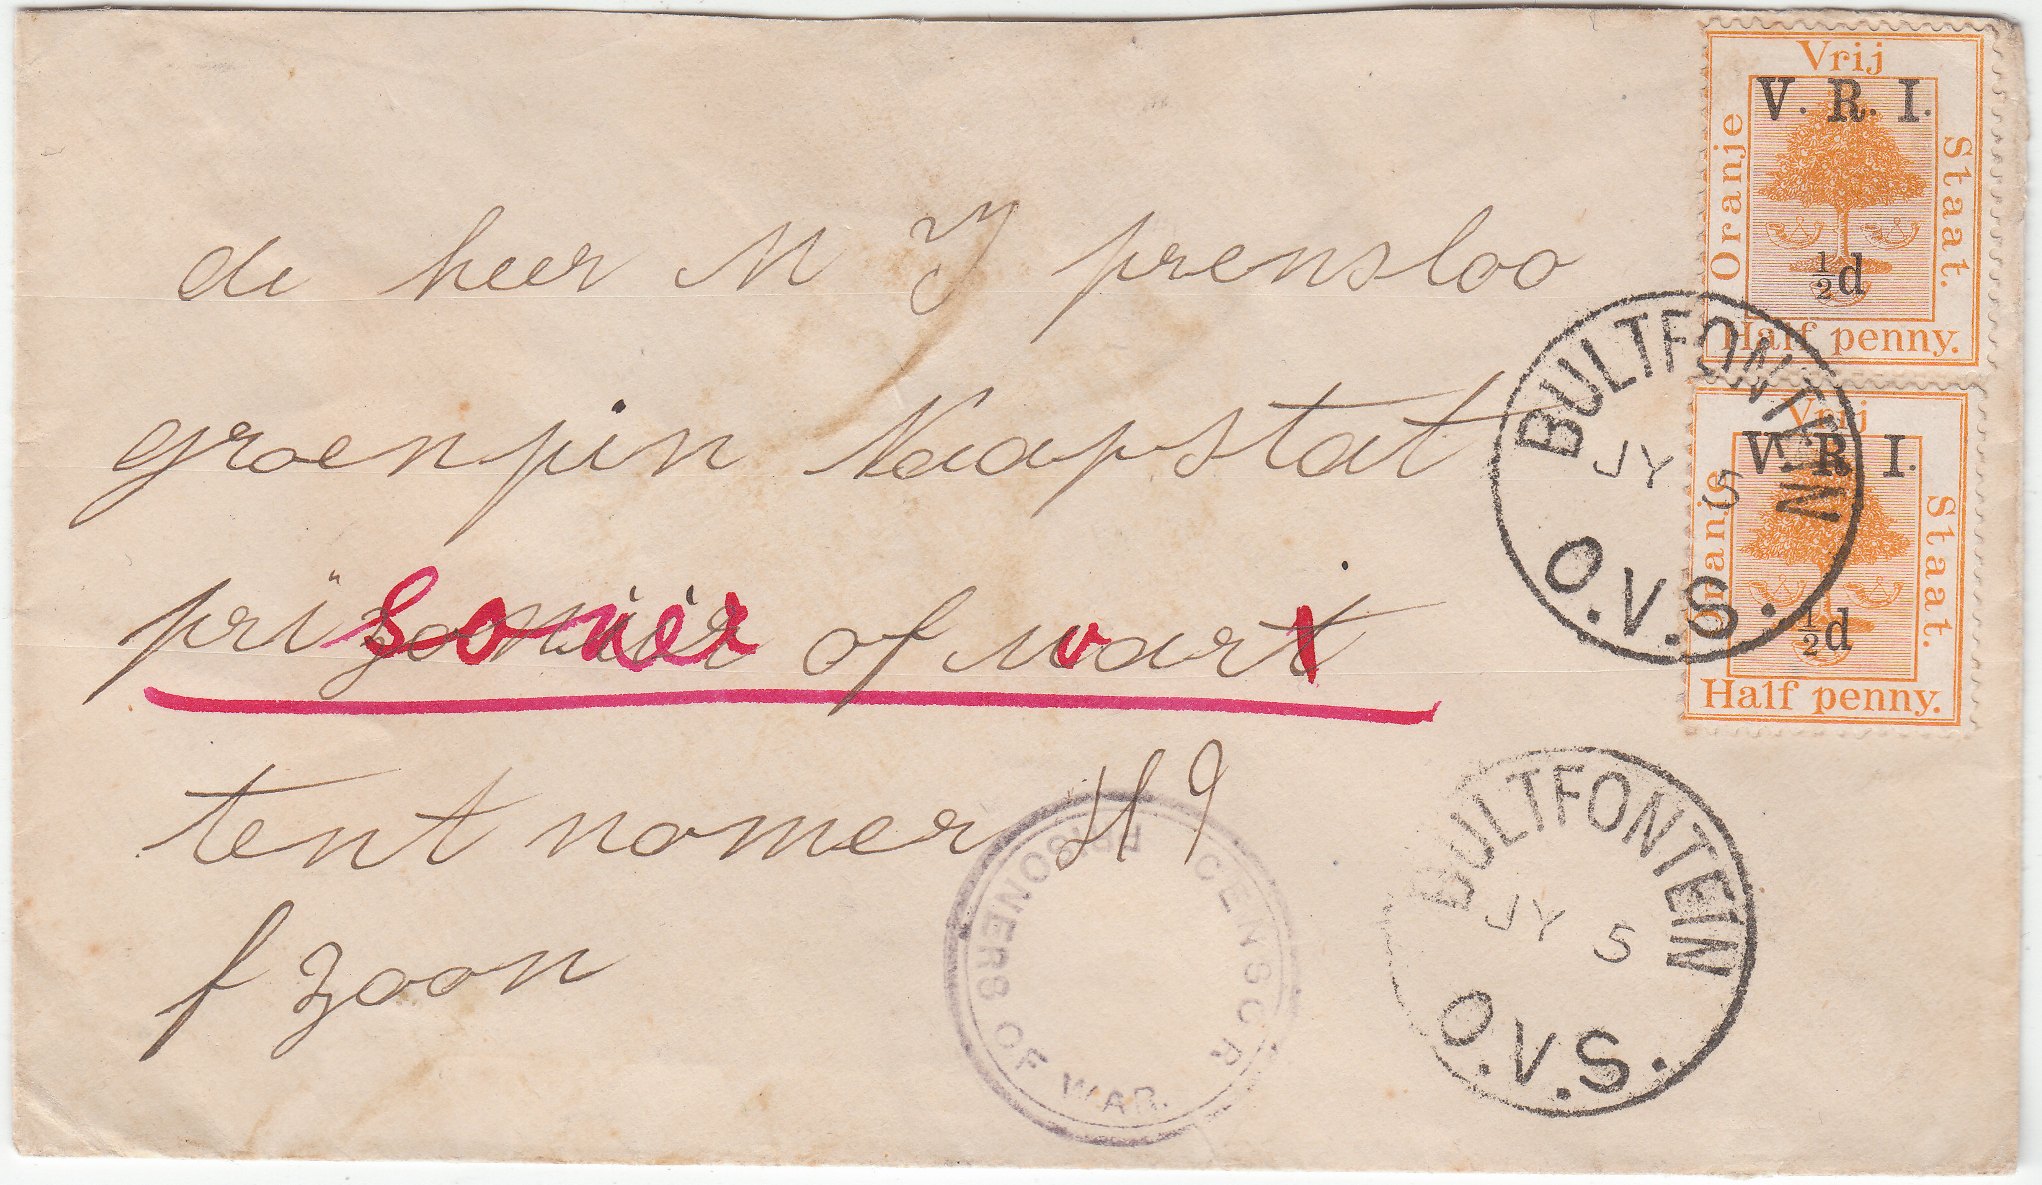 Vrij
V. R. I.
Oranje
Staat.
½d
Half penny.
de heer M J prensloo
groenpin Kaapstat
prizonnir of wart
soner
tent nomer H 9
f zoon
Vrij
V. R. I.
Oranje
Staat.
½d
Half penny.
BULTFONTEIN
JY 5
O.V.S.
BULTFONTEIN
JY 5
O.V.S.
PRISONERS OF WAR.
CENSOR